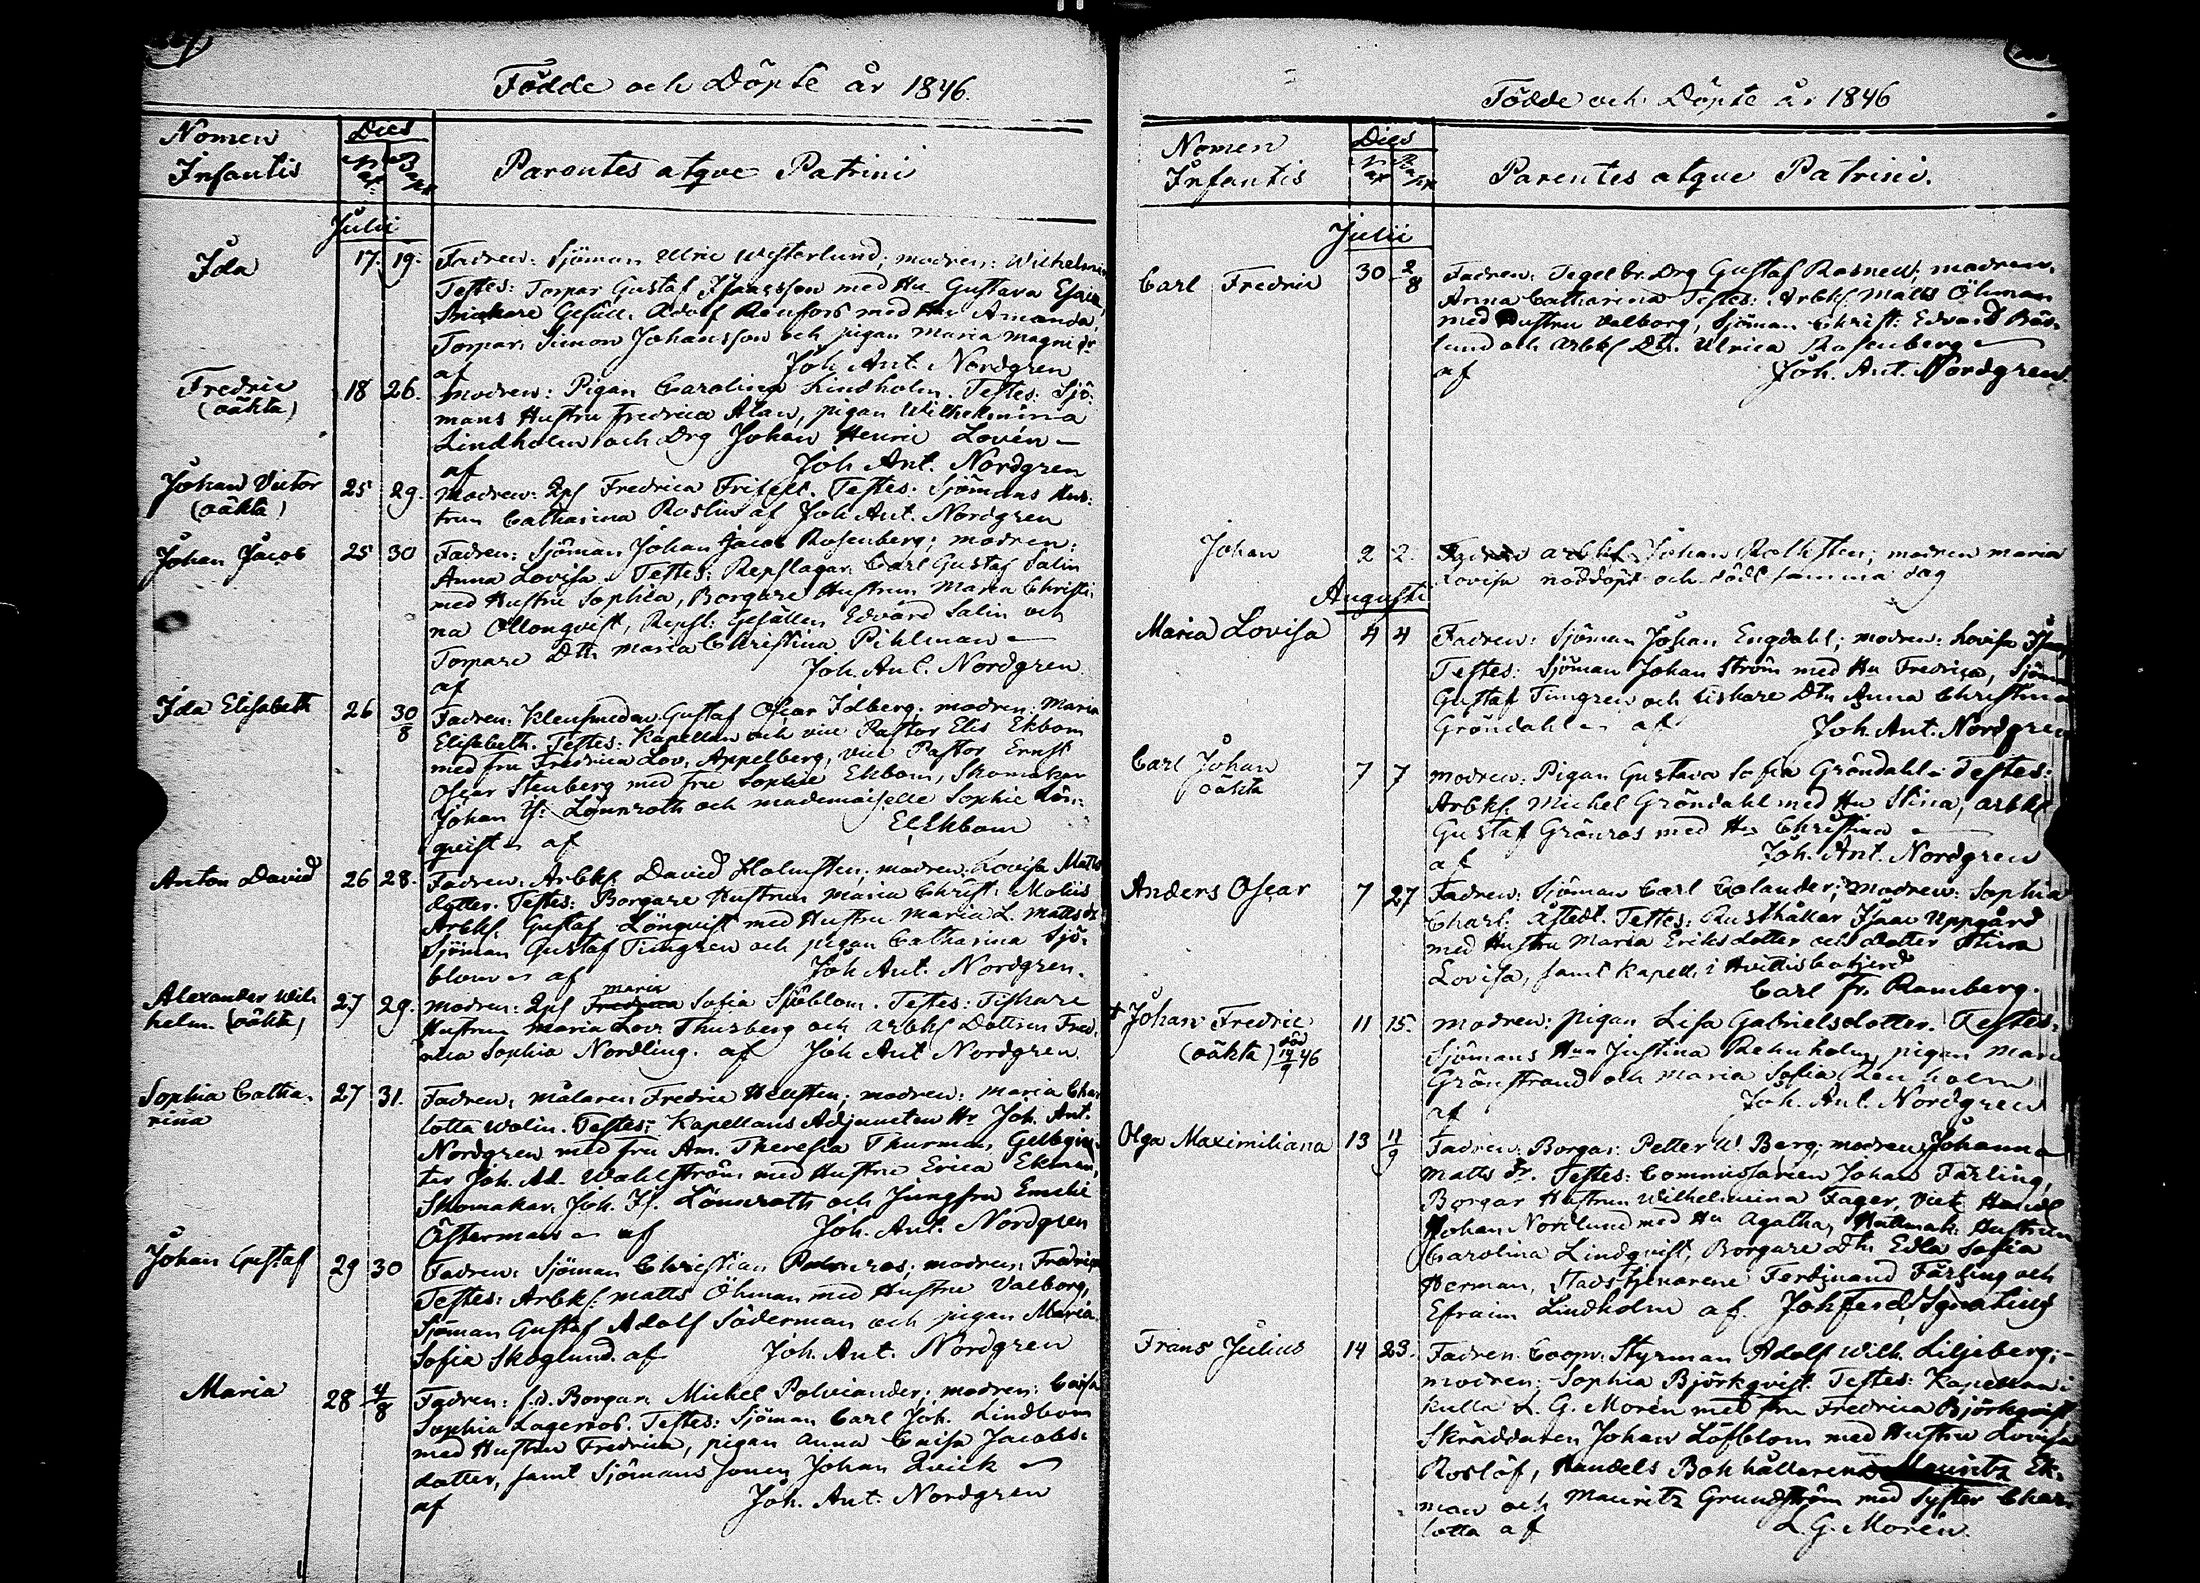 Födde och Döpte år 1846.
Nomen
Infantis
Dies
Nat
Bapt
Parentes atque Patrini
Julii
Ida
17. 19.
Fadren: Sjöman Ulric Westerlund; modren: Wilhelmi
Testes: Torpar. Gustaf Isacsson med Hu Gustava Esaia
Snickare Gesäll. Adolf Renfors med Hu Amanda,
Torpar. Simon Johansson och pigan Maria Magni dr
af Joh. Ant. Nordgren
Fredric
(oäkta)
18 26.
modren: Pigan Carolina Lindholm. Testes: Sjö-
mans Hustru Fredrica Alan, pigan Wilhelmina
Lindholm och Drg Johan Henric Lovén
af Joh Ant. Nordgren
Johan Victor
(oäkta)
25 29.
Modren: Qps Fredrica. Testes: Sjömans Hus-
trun Catharina Roslin af Joh Ant. Nordgren
Johan Jacob
25 30
Fadren: Sjöman Johan Jacob Rosenberg; modren:
Anna Lovisa. Testes: Repslagar. Carl Gustaf Salin
med Hustru Sophia, Borgare Hustrun Maria Christi-
na Ollonqvist, Repsl: Gesällen Edvard Salin och
Torpare Dtr. Maria Christina Pihlman
af Joh. Ant. Nordgren
Ida Elisabeth
26 30/8
Fadren: Klensmeden Gustaf Oscar Idberg. modren: Maria
Elisabeth. Testes: Kapellan och vice Pastor Elis Ekbom
med fru Fredrica Lov. Appelberg, vice Pastor Ernst
Oscar Stenberg med fru Sophie Ekbom, Skomakar
Johan Is: Lönnroth och mademoiselle Sophie Lön-
qvist af El. Ekbom
Anton David
26 28.
Fadren: Arbks. David Holmsten; modren: Lovisa Matts
dotter. Testes: Borgare Hustrun Maria Christ: Molius
Arbks. Gustaf Lönqvist med Hustru Maria L. Matts dr
Sjöman Gustaf Timgren och pigan Catharina Sjö-
blom af Joh Ant. Nordgren.
Alexander Wil-
helm (oäkta)
27 29.
maria
modren: Qps Fredrica Sofia Sjöblom. Testes: Fiskare
Hustrun Maria Lov. Thusberg och Arbks Dottren Fred-
rica Sophia Nordling. af Joh Ant Nordgren.
Sophia Catha-
rina
27 31.
Fadren: målaren Fredric Hellsten; modren: Maria Char
lotta Wolin. Testes: Kapellans Adjuncten Hr Joh. Ant.
Nordgren med fru Am. Theresia Thurman, Gelbgiu-
ter Joh. Ad. Wahlström med Hustru Erica Ekman,
Skomakar. Joh. Is. Lönnroth och Jungfru Emelie
Österman af Joh. Ant. Nordgren
Johan Gustaf
29 30
Fadren: Sjöman Christian Palmros; modren: Fredrica
Testes: Arbks: Matts Öhman med Hustru Valborg,
Sjöman Gustaf Adolf Söderman och pigan Maria
Sofia Skoglund. af Joh. Ant. Nordgren
Maria
28 4/8
Fadren: f.d. Borgar. Michel Polviander; modren: Caisa
Sophia Lagerros. Testes: Sjöman Carl Joh. Lindbom
med Hustru Fredrica, pigan Anna Caisa Jacobs-
dotter, samt Sjömans sonen Johan Qvick
af Joh. Ant. Nordgren
Födde och Döpte år 1846
Nomen
Infantis
Dies
Nat
Bapt
Parentes atque Patrini.
Julii
Carl Fredric
30 2/8
Fadren: Tegelbr. Drg Gustaf Rosnell; modren.
Anna Catharina Testes: Arbks. Matts Öhman
med Hustru Valborg, Sjöman Christ: Edvard Bäs-
lund och Arbks Dtr. Ulrica Rosenberg
af Joh. Ant. Nordgren.
Johan
2 2.
Fadren arbks. Johan Rothsten; modren Maria
Lovisa nöddöpt och död samma dag
Augusti
Maria Lovisa
4 4
Fadren: Sjöman Johan Engdahl; modren: Lovisa
Testes: Sjöman Johan Ström med Hu Fredrica, Sjöman
Gustaf Timgren och Fiskare Dtr Anna Christina
Gröndahl af Joh. Ant. Nordgren
Carl Johan
oäkta
7 7
modren: Pigan Gustava Sofia Gröndahl. Testes:
Arbks. Michel Gröndahl med Hu Stina, Arbks
Gustaf Grönros med Hu Christina
af Joh. Ant. Nordgren
Anders Oscar
7 27
Fadren: Sjöman Carl Colander; modren: Sophia
Charl: Åstedt. Testes: Rusthållar Isaac Uppgård
med Hustru Maria Eriksdotter och dotter Stina
Lovisa, samt Kapell. i Hvittisbofjerd
Carl Fr. Ramberg.
+ Johan Fredric
(oäkta) död
14/9 46
11 15.
modren: pigan Lisa Gabrielsdotter. Testes:
Sjömans Hun Justina Renholm, pigan Mari
Grönstrand och Maria Sofia Renholm
af Joh. Ant. Nordgren
Olga Maximiliana
13 11/9
Fadren: Borgar. Petter W. Berg; modren: Johanna
Matts dr. Testes: Commissarien Johan Färling,
Borgar Hustrun Wilhelmina Fager, Vict. Handl
Johan Nordlund med Hu Agatha, Hattmak. Hustrun
Carolina Lindqvist, Borgare Dtr. Edla Sofia
Herman, Stadstjenarene Ferdinand Färling och
Efraim Lindholm af. Joh Ferd. Ignatius
Frans Julius
14 23.
Fadren Coopv. Styrman Adolf Wilh. Liljeberg;
modren: Sophia Björkqvist. Testes: Kapellan i
Kulla L. G. Morén med fru Fredrica Björkqvist,
Skräddaren Johan Löfblom med Hustru Lovisa
Roslöf, Handels Bokhållarene Mauritz Ek-
man och Mauritz Grundström med Syster Char-
lotta af L. G. Morén.